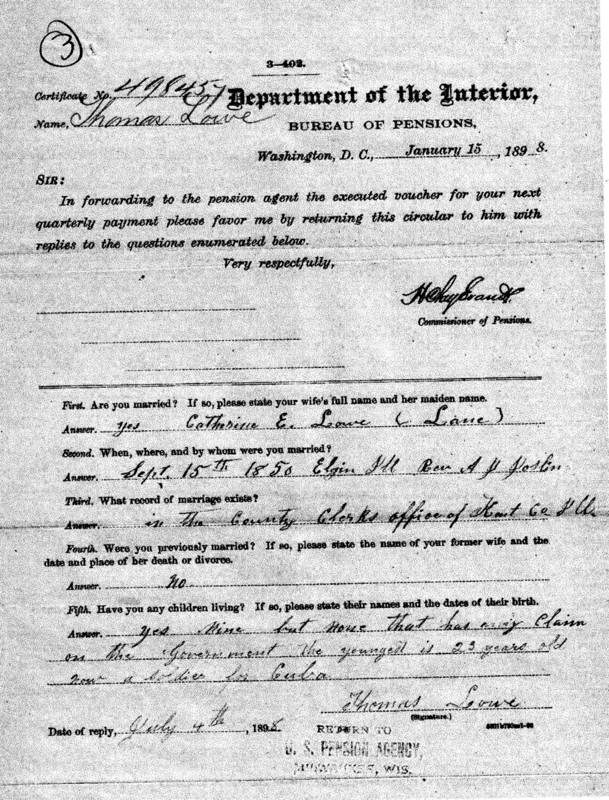 3
3-402.
Certificate No. 498457
Department of the Interior,
Name, Thomas Lowe
BUREAU OF PENSIONS,
Washington, D. C., January 15, 1898.
SIR:
In forwarding to the pension agent the executed voucher for your next
quarterly payment please favor me by returning this circular to him with
replies to the questions enumerated below.
Very respectfully,
H Clay Evans
Commissioner of Pensions.
First. Are you married? If so, please state your wife's full name and her maiden name.
Answer. yes Catherine E. Lowe (Lane)
Second. When, where, and by whom were you married?
Answer. Sept. 15th 1850 Elgin Ill Rev A J Joslin
Third. What record of marriage exists?
Answer. in the County Clerks office of Co Ill.
Fourth. Were you previously married? If so, please state the name of your former wife and the
date and place of her death or divorce.
Answer. No
Fifth. Have you any children living? If so, please state their names and the dates of their birth.
Answer. yes Nine but none that has any Claim
on the Government the youngest is 23 years old
now a Soldier for Cuba
Thomas Lowe
(Signature.)
Date of reply, July 4th, 1898.
RETURN TO
U. S. PENSION AGENCY,
MILWAUKEE, WIS.